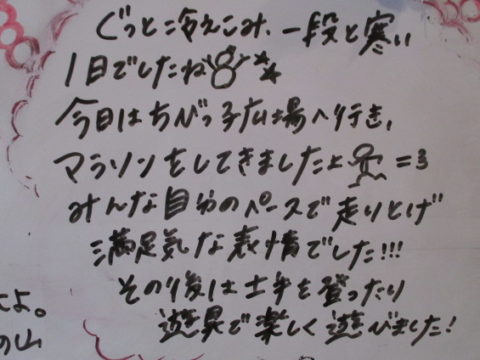 ぐっと冷えこみ、一段と寒い
1日でしたね
今日はちびっ子広場へ行き、
マラソンをしてきましたよ =3
みんな自分のペースで走りとげ
満足気な表情でした!!!
その後は土手を登ったり
遊具で楽しく遊びました!
よ。
の山